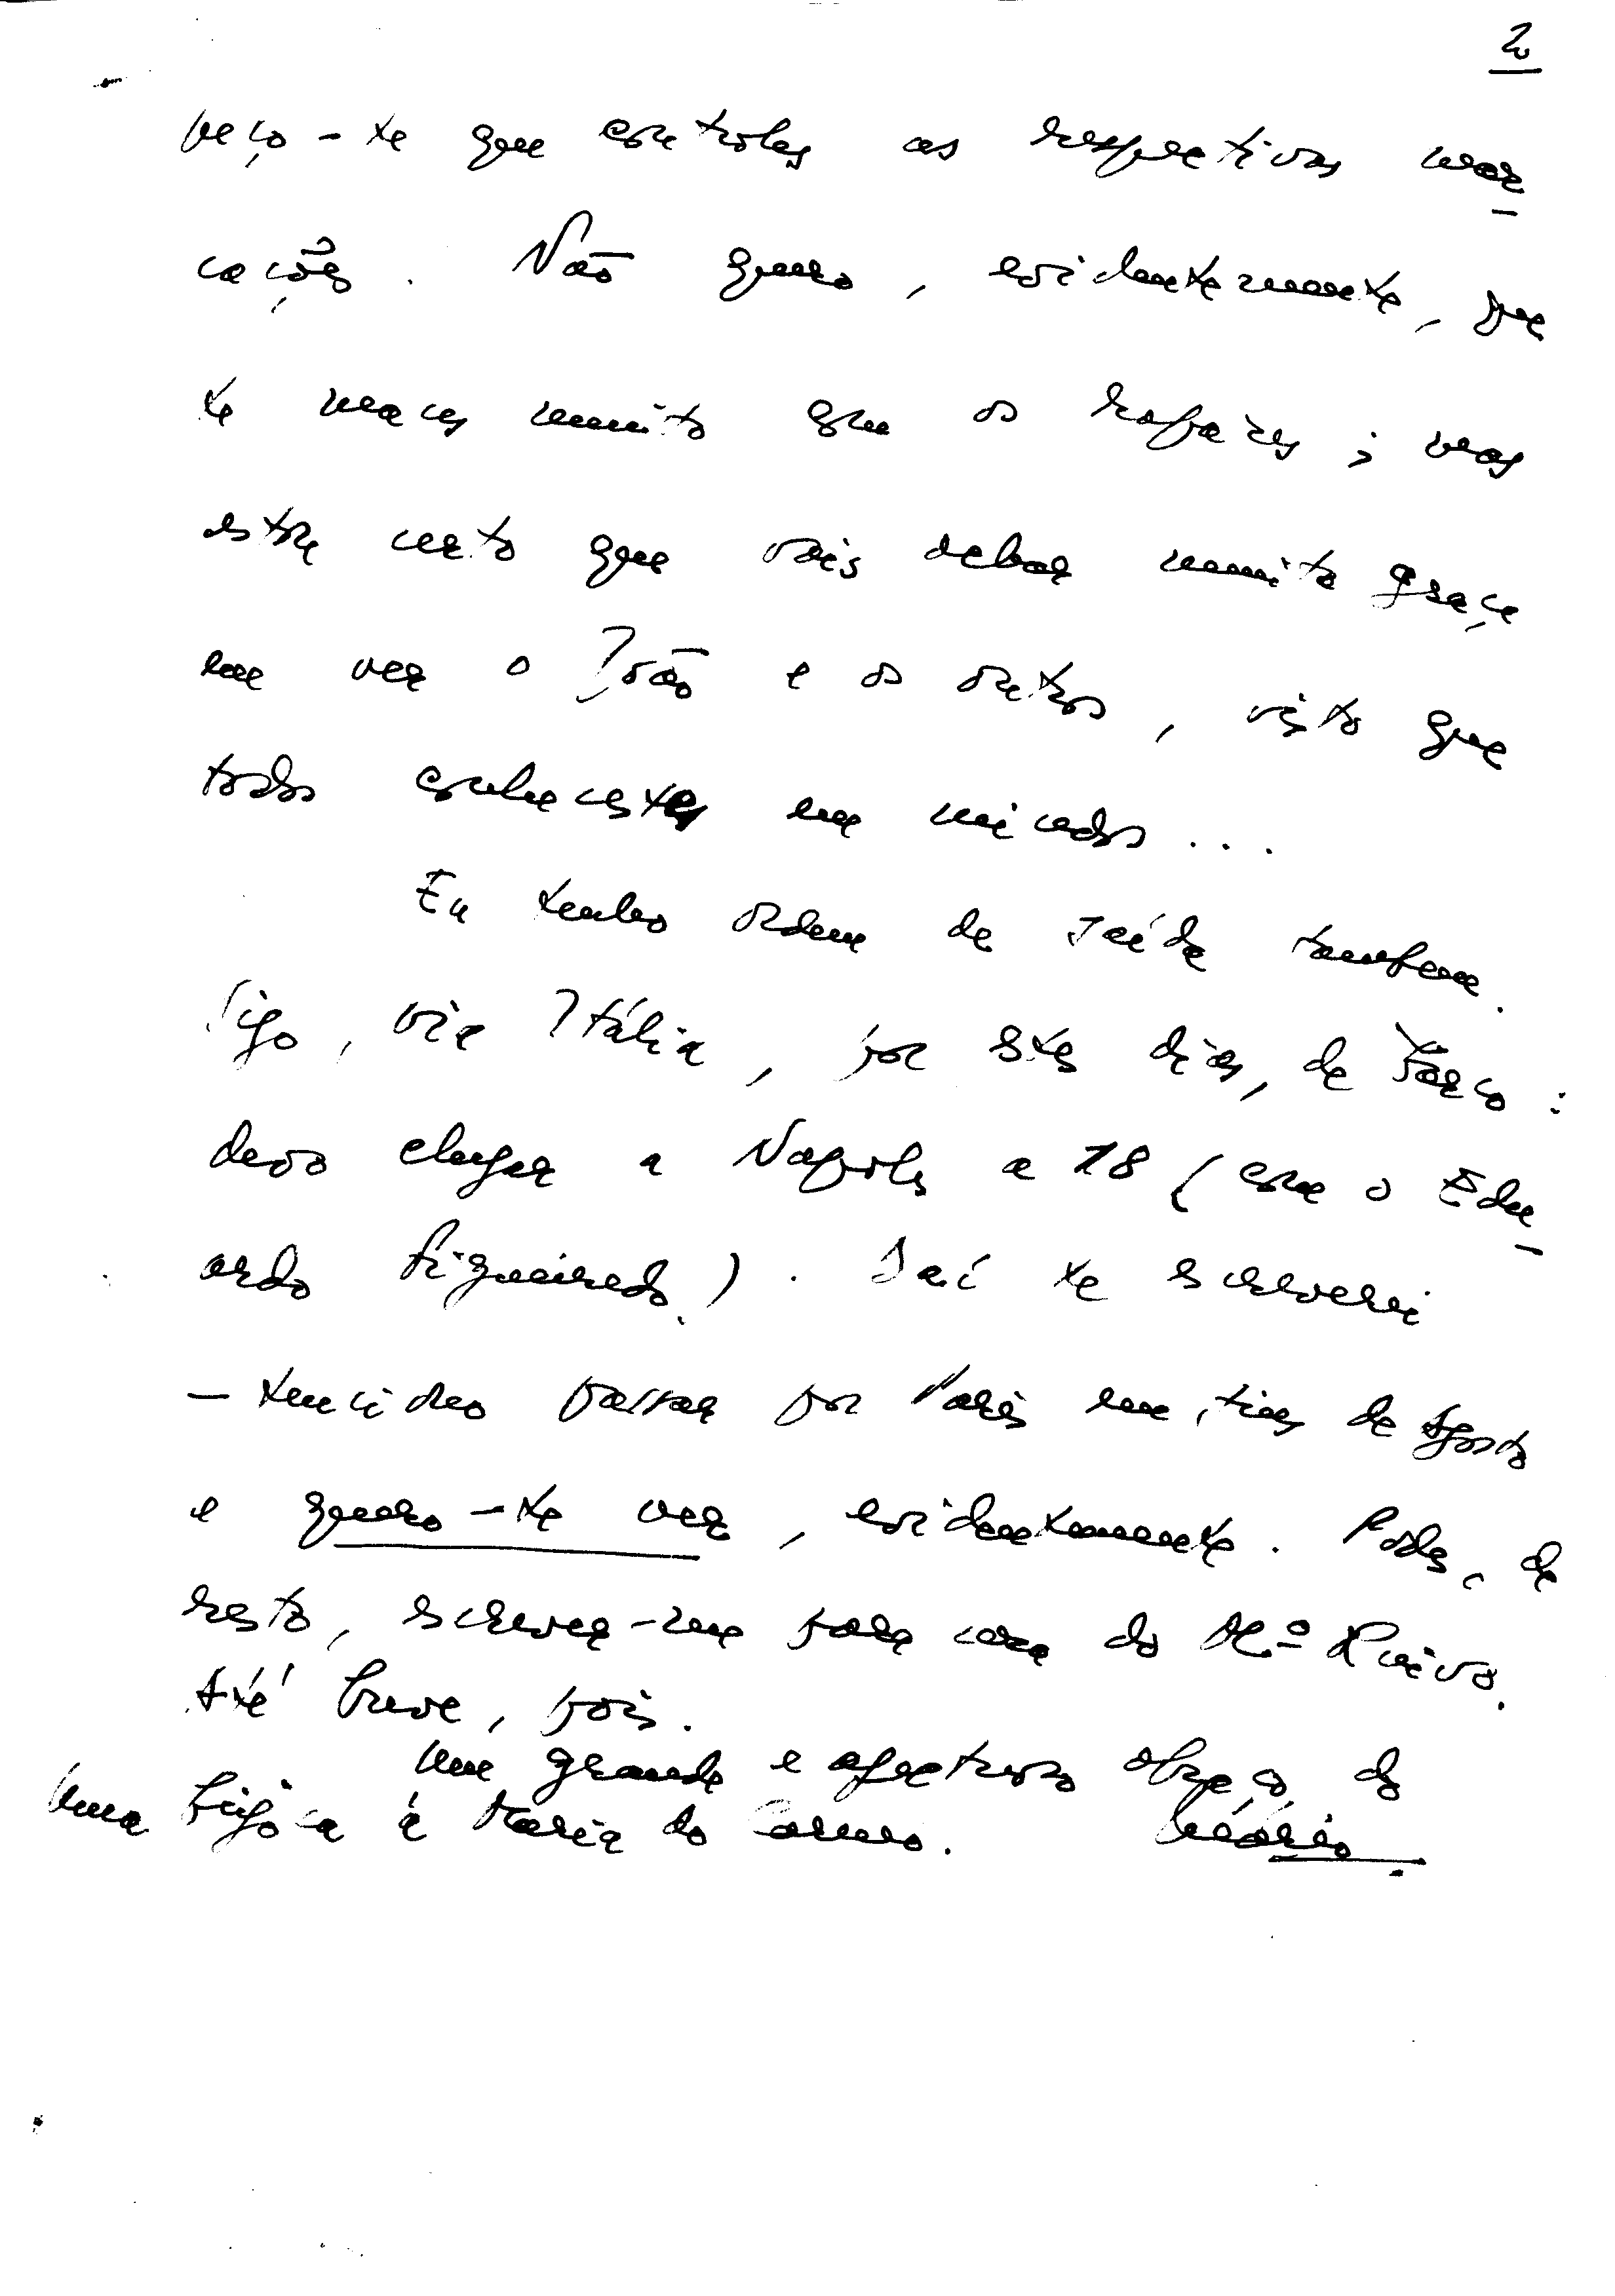 2
peço-te que controles as respectivas mar-
cações. Não quero, evidentemente, que
te maces muito com os rapazes; mas
estou certo que vais achar muita graça
em ver o João e os outros, visto que
todos conhecestes em miudos...
Eu tenho ordem de saída tambem.
Sigo, via Itália, por estes dias, de barco:
devo chegar a Napoles a 18 (com o Edu-
ardo Figueiredo). Daí te escreverei
- tenciono passar por Paris em fins de Agosto
e quero-te ver, evidentemente. Podes, de
resto, escrever-me para casa do M.º Ruivo.
Até breve, pois.
Um grande e afectuoso abraço do
Uma figa à Maria do Carmo. Mário